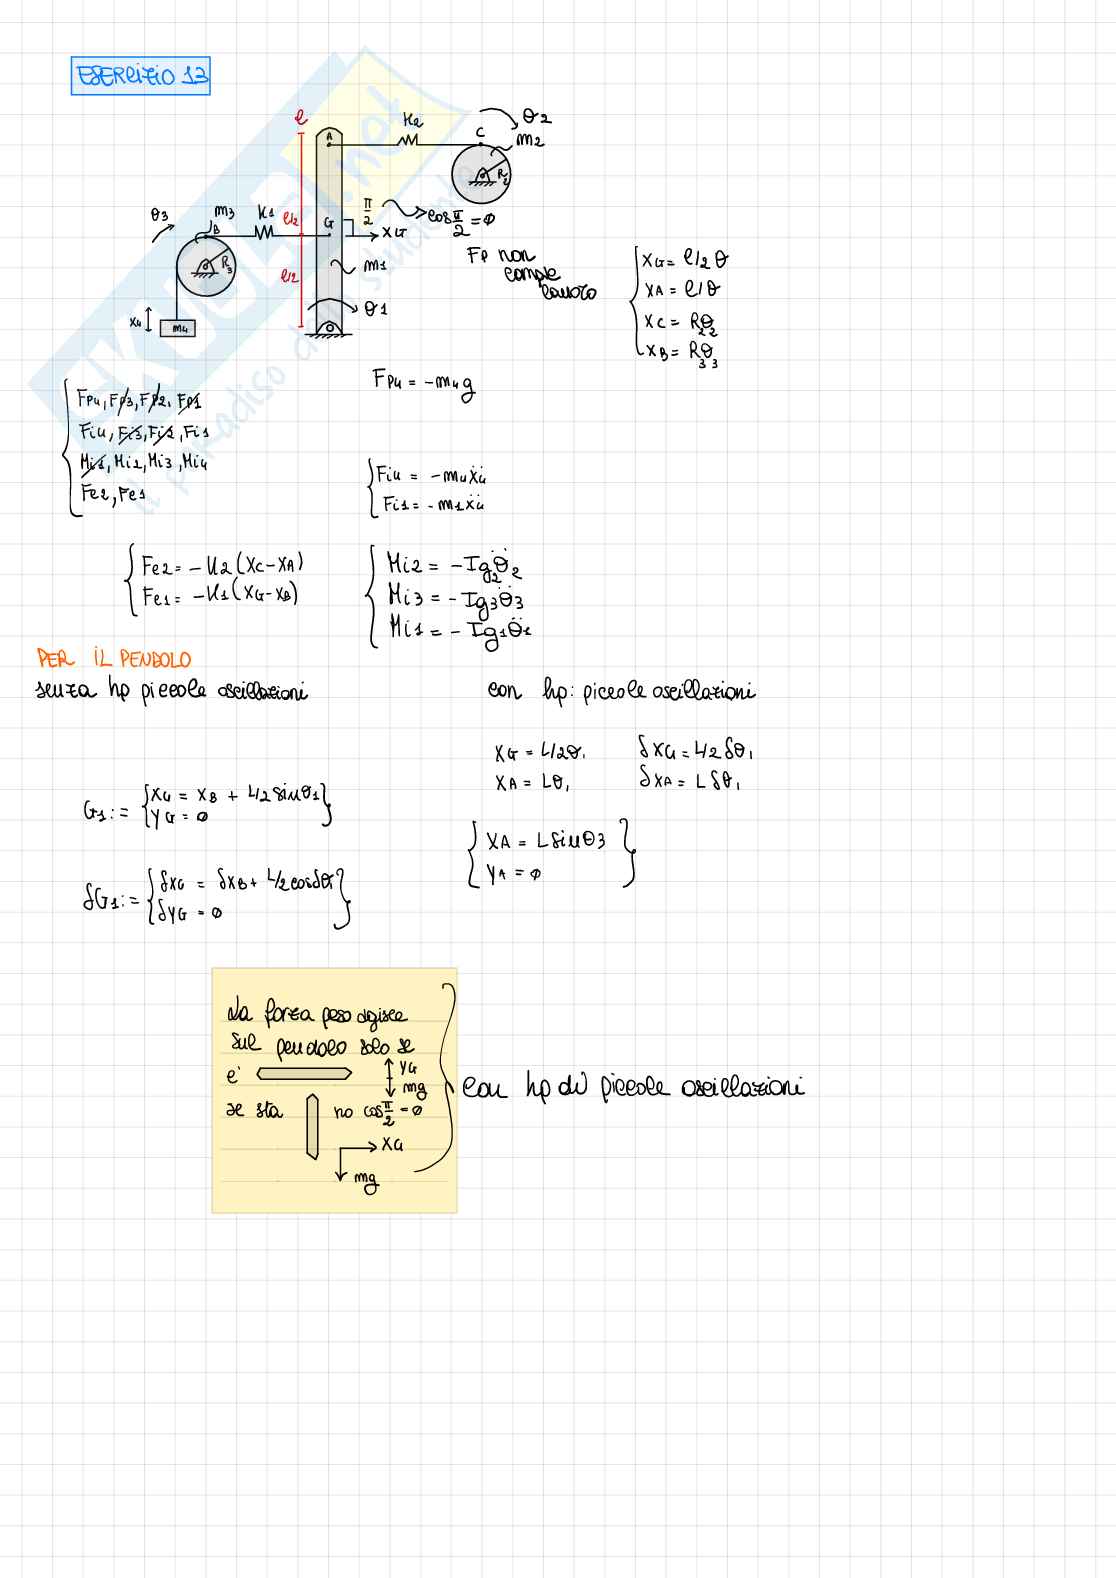 ESERCIZIO 13
l
A
K2
C
θ2
m2
R2
θ3
m3
B
K1
l/2
G
π/2
cos π/2 = ∅
XG
Fp non
compie
lavoro
R3
m1
l/2
θ1
X4
m4
XG = l/2 θ
XA = l/θ
XC = R2θ2
XB = R3θ3
Fp4 = -m4g
Fp4, Fp3, Fp2, Fp1
Fi4, Fi3, Fi2, Fi1
Mi1, Mi2, Mi3, Mi4
Fe2, Fe1
Fi4 = -m4ẍ4
Fi1 = -m1ẍ4
Fe2 = -K2 (XC-XA)
Fe1 = -K1 (XG-XB)
Mi2 = -Ig2θ̈2
Mi3 = -Ig3θ̈3
Mi1 = -Ig1θ̈1
PER IL PENDOLO
senza hp piccole oscillazioni
con hp: piccole oscillazioni
XG = L/2θ1 δXG = L/2 δθ1
XA = Lθ1 δXA = L δθ1
G1 := {XG = XB + L/2 sinθ1
YG = ∅}
XA = L sinθ3
YA = ∅
δG1 := {δXG = δXB + L/2 cosδθ1
δYG = ∅}
La forza peso agisce
sul pendolo solo se
e'
YG
mg
se sta
no cos π/2 = ∅
XG
mg
con hp di piccole oscillazioni
SKUOLA.net
il paradiso dello studente